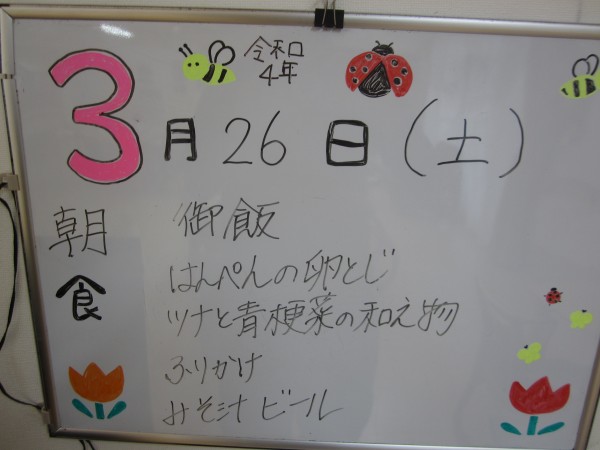 令和
4年
3月26日(土)
朝食
御飯
はんぺんの卵とじ
ツナと青梗菜の和え物
ふりかけ
みそ汁 ビール